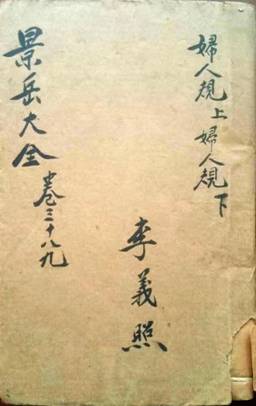 婦人規上婦人規下
李義照
景岳大全卷三十八九